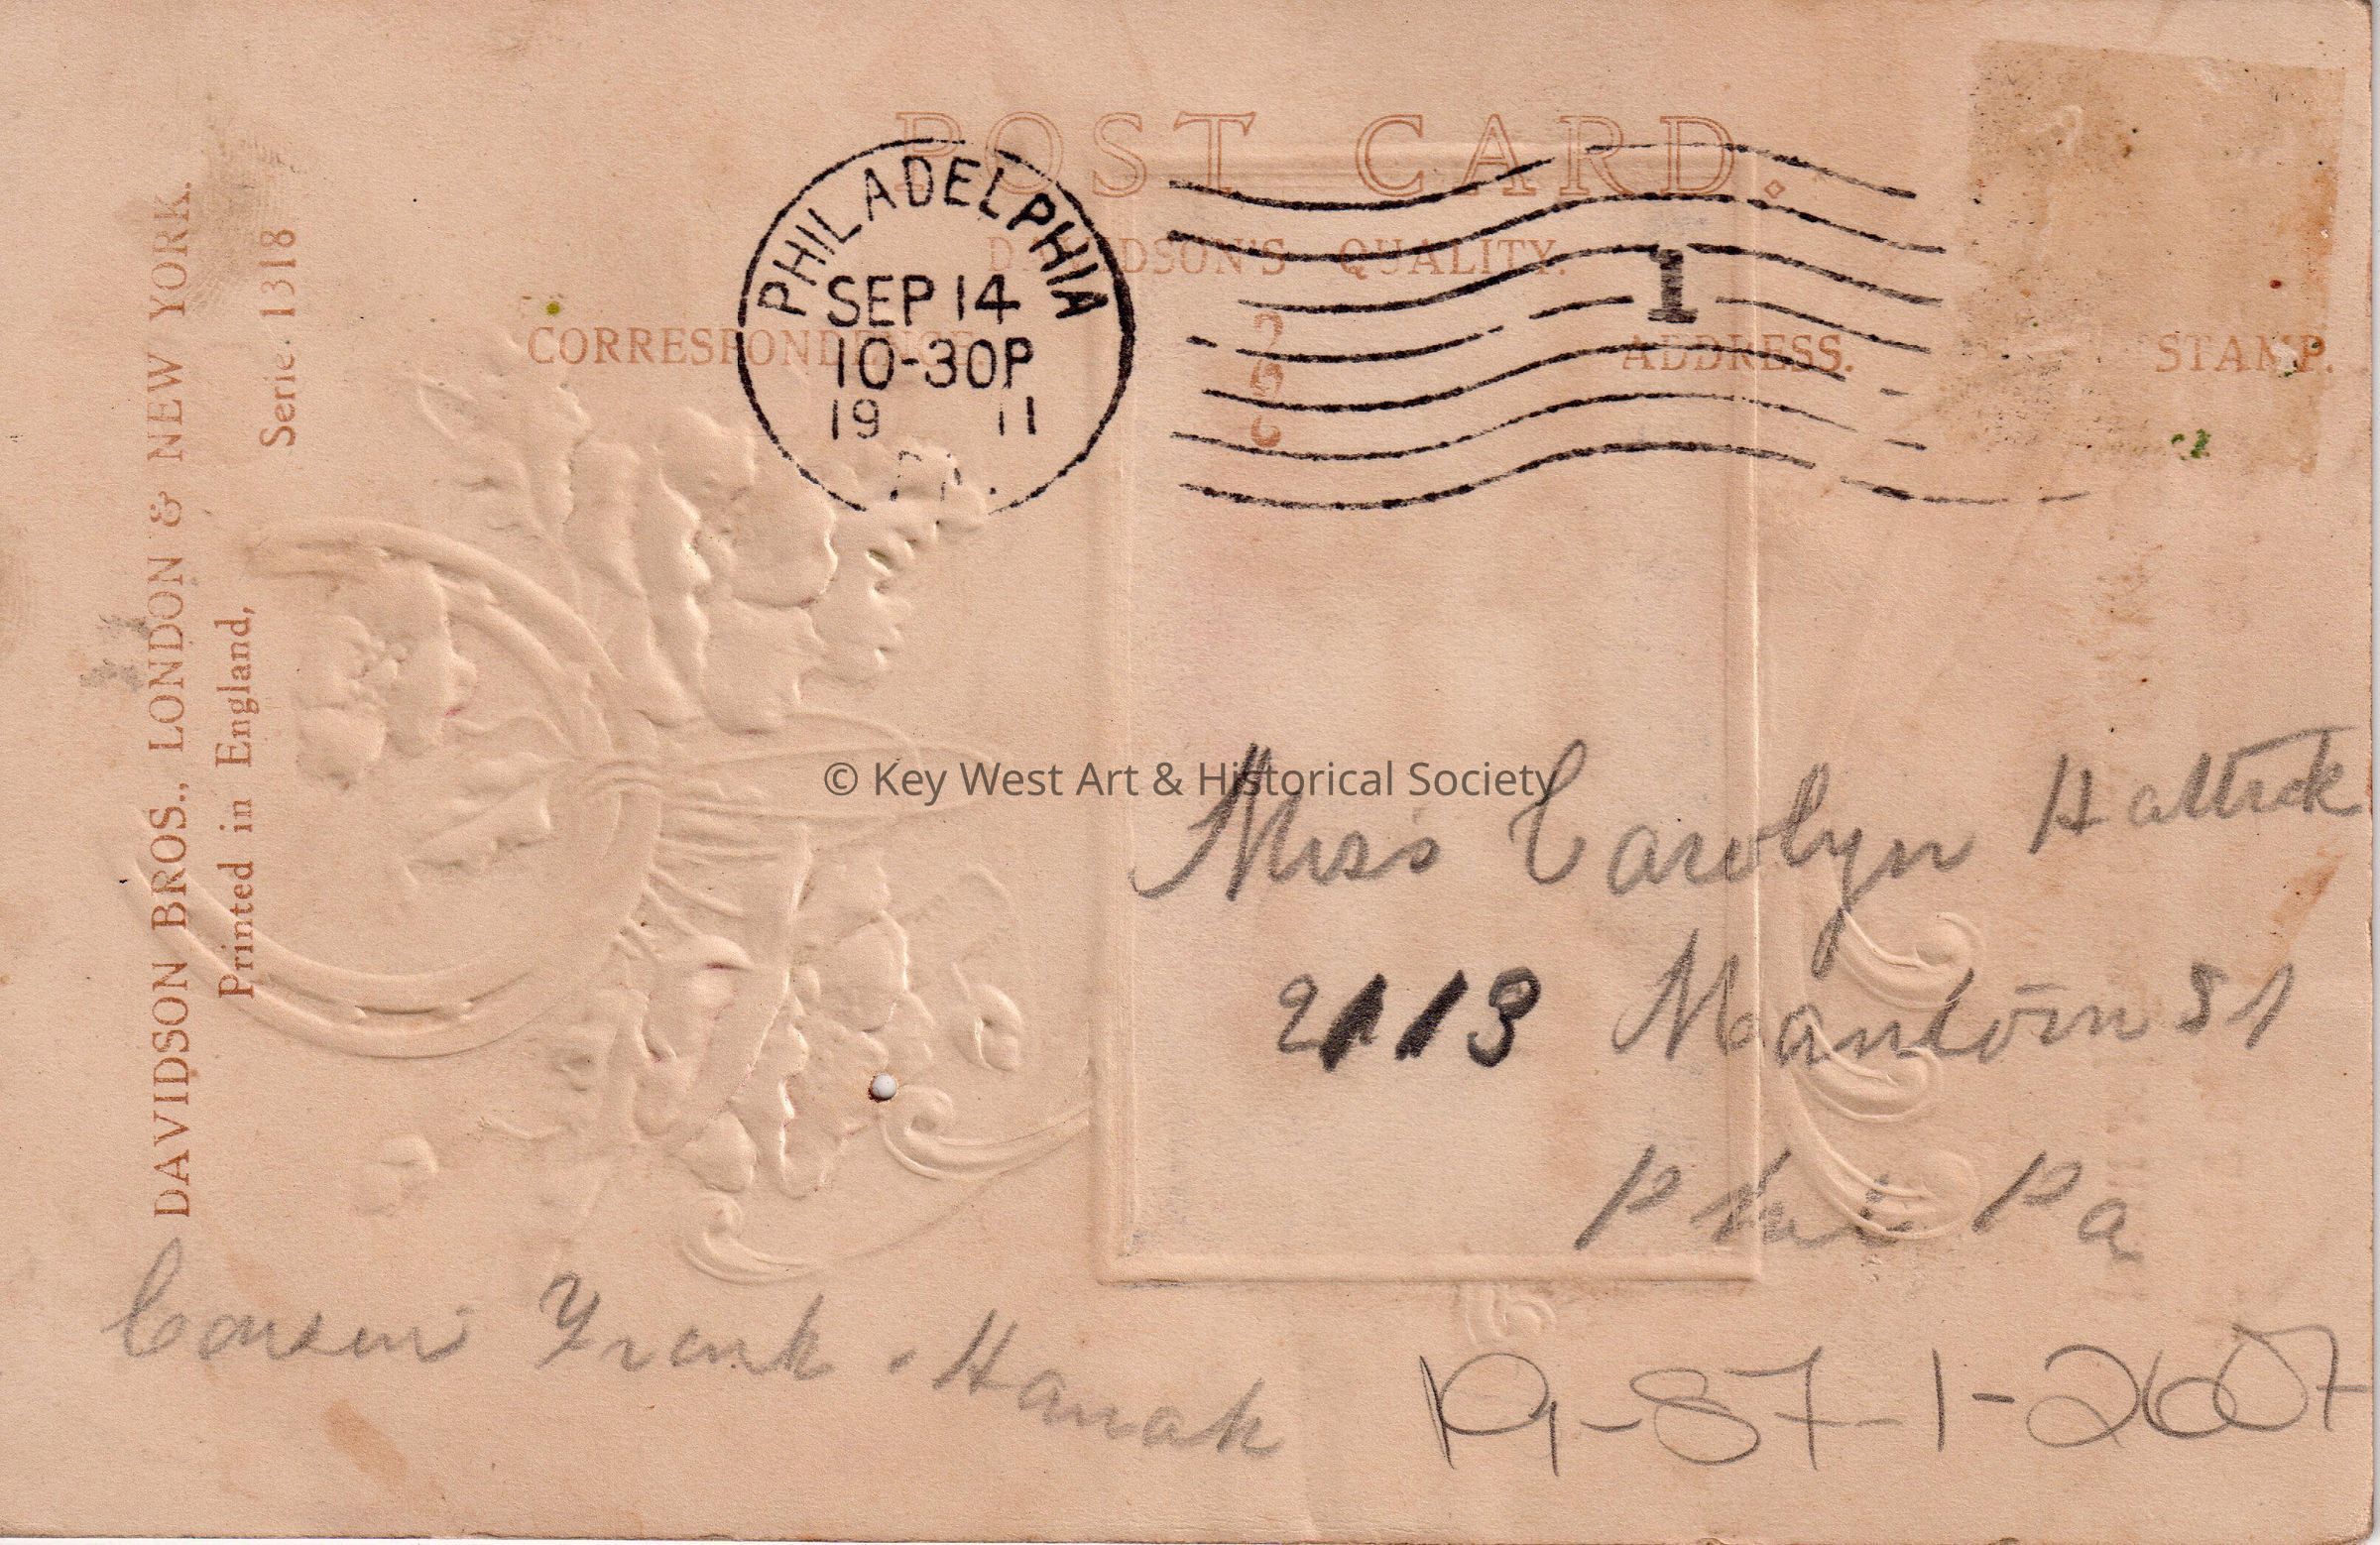 POST CARD.
DAVIDSON'S QUALITY.
CORRESPONDENCE
ADDRESS.
STAMP.
PHILADELPHIA
SEP 14
10-30P
19 11
PA.
1
DAVIDSON BROS., LONDON & NEW YORK.
Printed in England,
Serie. 1318.
© Key West Art & Historical Society
Miss Carolyn
2113 St
Phi Pa
Cousin Frank. Hanak
19-87-1-2607